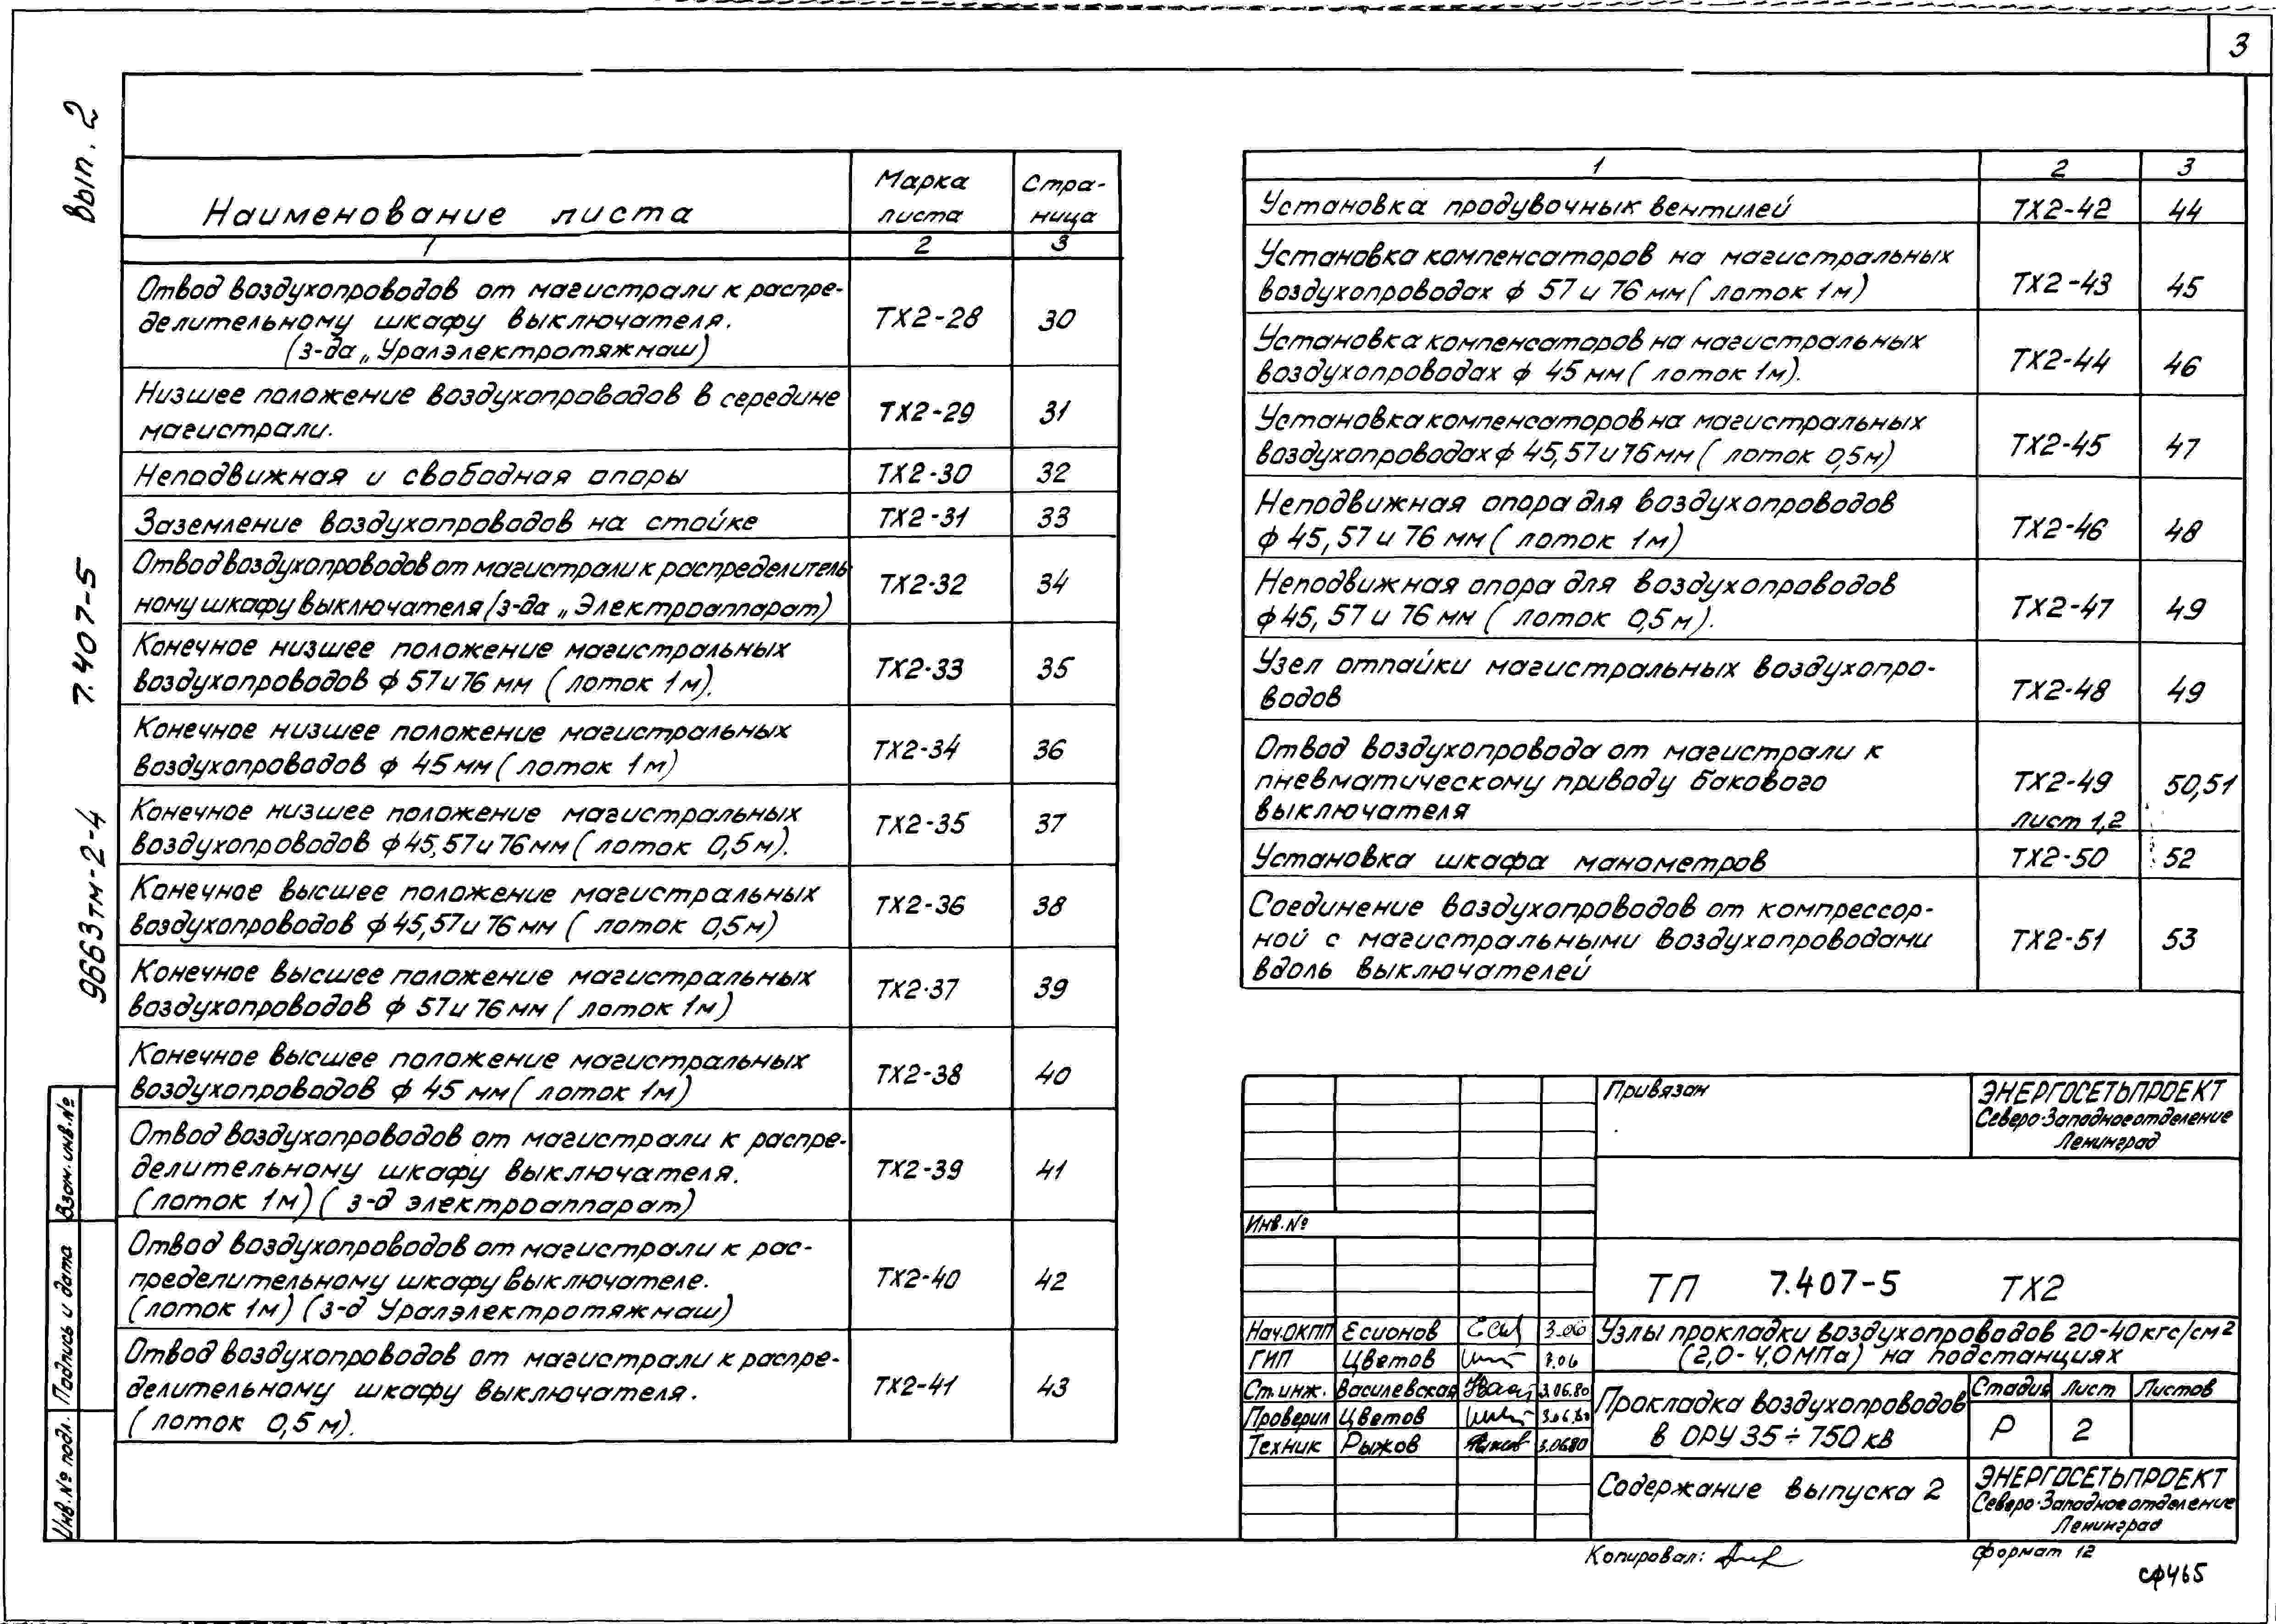 3
Вып. 2
7.407-5
9663тм-2-4
Наименование листа
Марка листа
Стра-
ница
1 2 3
Отвод воздухопроводов от магистрали к распре-
делительному шкафу выключателя.
(з-да „Уралэлектротяжмаш)
ТХ2-28 30
Низшее положение воздухопроводов в середине
магистрали.
ТХ2-29 31
Неподвижная и свободная опоры ТХ2-30 32
Заземление воздухопроводов на стойке ТХ2-31 33
Отвод воздухопроводов от магистрали к распределитель
ному шкафу выключателя (з-да „Электроаппарат)
ТХ2-32 34
Конечное низшее положение магистральных
воздухопроводов ф 57 и 76 мм (лоток 1м).
ТХ2-33 35
Конечное низшее положение магистральных
воздухопроводов ф 45 мм (лоток 1м)
ТХ2-34 36
Конечное низшее положение магистральных
воздухопроводов ф 45, 57 и 76 мм (лоток 0,5м).
ТХ2-35 37
Конечное высшее положение магистральных
воздухопроводов ф 45,57 и 76 мм (лоток 0,5м)
ТХ2-36 38
Конечное высшее положение магистральных
воздухопроводов ф 57 и 76 мм (лоток 1м)
ТХ2-37 39
Конечное высшее положение магистральных
воздухопроводов ф 45 мм (лоток 1м)
ТХ2-38 40
Отвод воздухопроводов от магистрали к распре-
делительному шкафу выключателя.
(лоток 1м) (з-д электроаппарат)
ТХ2-39 41
Отвод воздухопроводов от магистрали к рас-
пределительному шкафу выключателе.
(лоток 1м) (з-д Уралэлектротяжмаш)
ТХ2-40 42
Отвод воздухопроводов от магистрали к распре-
делительному шкафу выключателя.
(лоток 0,5 м).
ТХ2-41 43
1 2 3
Установка продувочнык вентилей ТХ2-42 44
Установка компенсаторов на магистральных
воздухопроводах ф 57 и 76 мм (лоток 1м)
ТХ2-43 45
Установка компенсаторов на магистральных
воздухопроводах ф 45 мм (лоток 1м).
ТХ2-44 46
Установка компенсаторов на магистральных
воздухопроводах ф 45, 57 и 76 мм (лоток 0,5м)
ТХ2-45 47
Неподвижная опора для воздухопроводов
ф 45, 57 и 76 мм (лоток 1м)
ТХ2-46 48
Неподвижная опора для воздухопроводов
ф 45, 57 и 76 мм (лоток 0,5м).
ТХ2-47 49
Узел отпайки магистральных воздухопро-
водов
ТХ2-48 49
Отвод воздухопровода от магистрали к
пневматическому приводу бакового
выключателя
ТХ2-49
лист 1,2
50,51
Установка шкафа манометров ТХ2-50 52
Соединение воздухопроводов от компрессор-
ной с магистральными воздухопроводами
вдоль выключателей
ТХ2-51 53
Привязан
ЭНЕРГОСЕТЬПРОЕКТ
Северо-Западное отделение
Ленинград
Инв. №
ТП 7.407-5 ТХ2
Нач.ОКПП Есионов
ГИП Цветов 3.06
Ст. инж. Василевская 3.06.80
Проверил Цветов 3.06.80
Техник Рыжов 3.0680
Узлы прокладки воздухопроводов 20-40кгс/см²
(2,0-4,0МПа) на подстанциях
Прокладка воздухопроводов
в ОРУ 35÷750 кв
Стадия Лист Листов
Р 2
Содержание выпуска 2
ЭНЕРГОСЕТЬПРОЕКТ
Северо-Западное отделение
Ленинград
Копировал:
формат 12
сф465
Взам. инв. №
Подпись и дата
Инв. № подл.